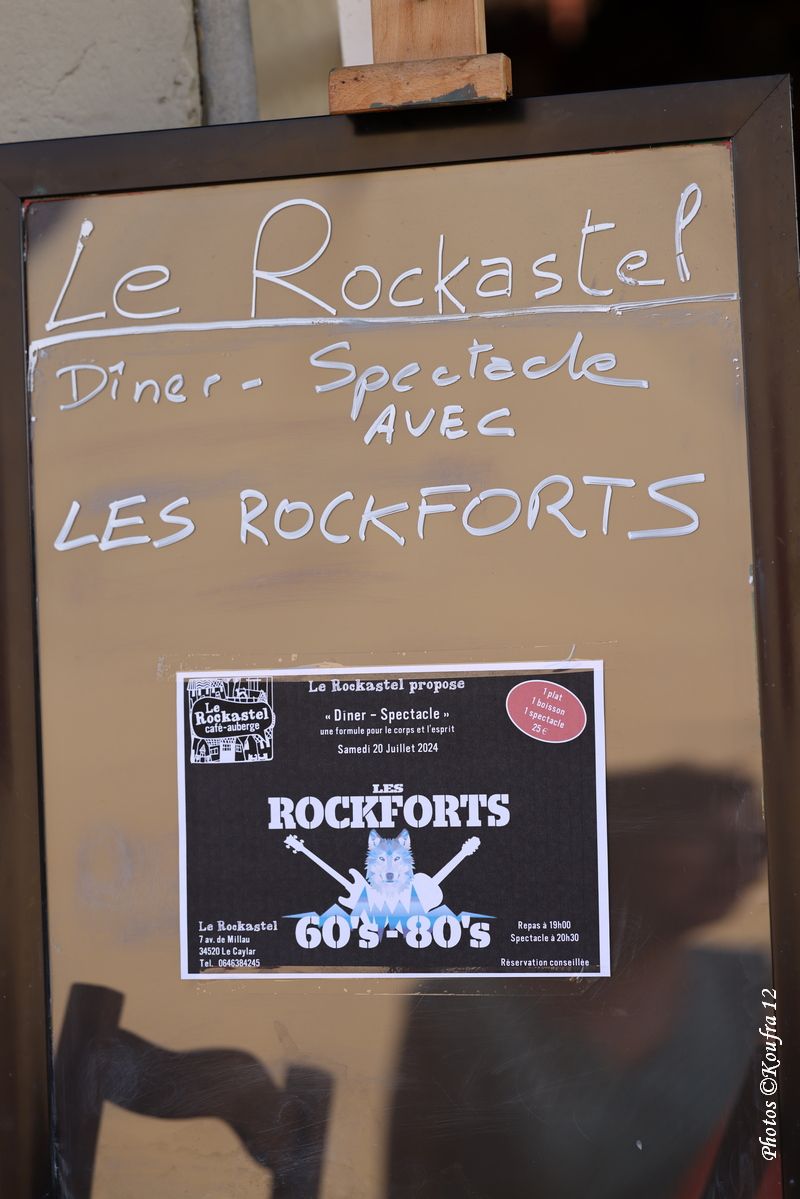 Le Rockastel
Dîner - Spectacle
AVEC
LES ROCKFORTS
Le
Rockastel
café-auberge
Le Rockastel propose
« Diner – Spectacle »
une formule pour le corps et l'esprit
Samedi 20 Juillet 2024
1 plat
1 boisson
1 spectacle
25 €
LES
ROCKFORTS
60's - 80's
Le Rockastel
7 av. de Millau
34520 Le Caylar
Tel. 0646384245
Repas à 19h00
Spectacle à 20h30
Réservation conseillée
Photos ©Koufra 12